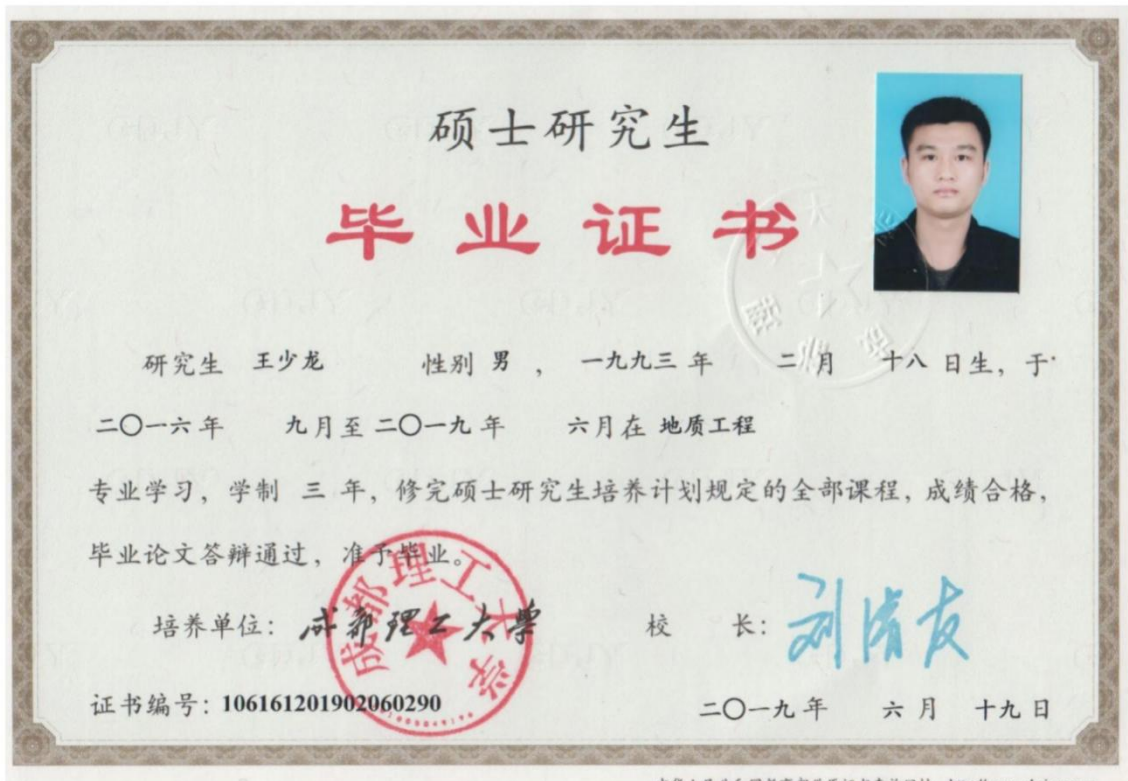 硕士研究生
毕业证书
研究生 王少龙 性别 男 ， 一九九三 年 二 月 十八 日生，于
二〇一六 年 九 月至 二〇一九 年 六 月在 地质工程
专业学习，学制 三 年，修完硕士研究生培养计划规定的全部课程，成绩合格，
毕业论文答辩通过，准予毕业。
成都理工大学
培养单位：成都理工大学 校 长：刘清友
证书编号：106161201902060290 二〇一九 年 六 月 十九 日